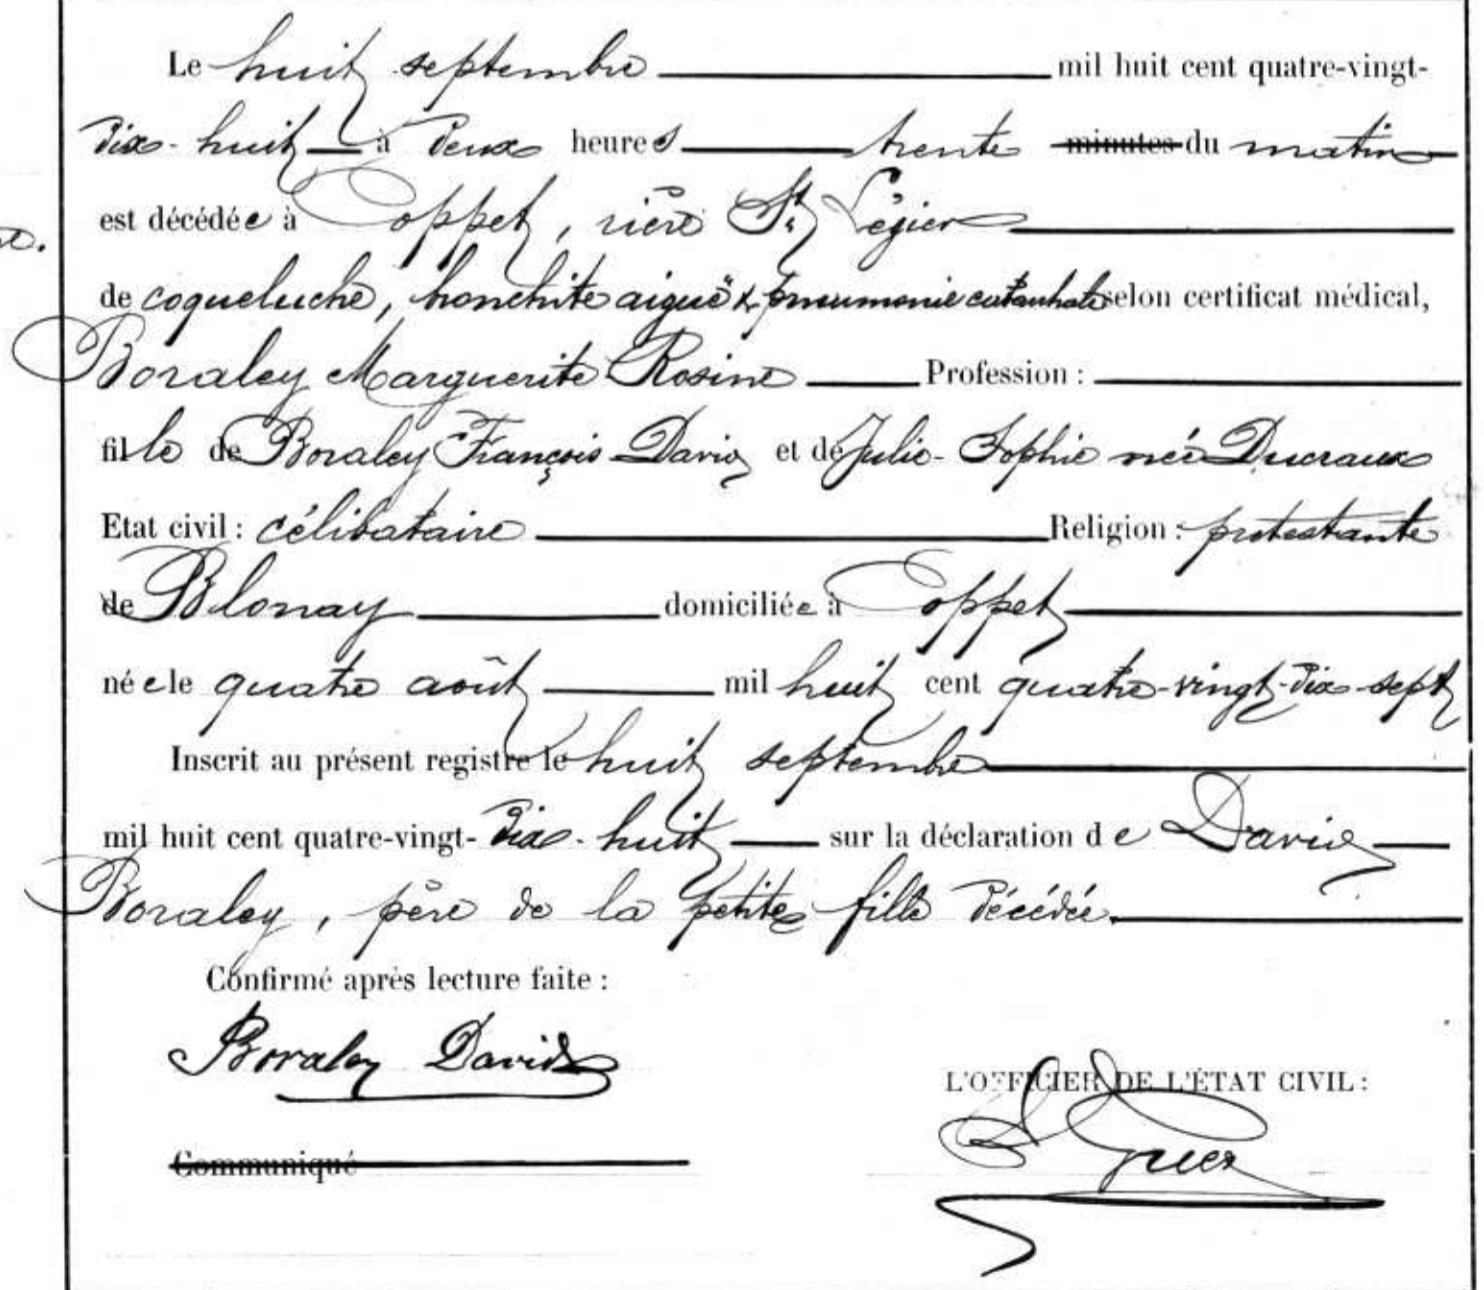 Le huit septembre mil huit cent quatre-vingt-
dix-huit à deux heures trente minutes du matin
est décédée à Coppet, rière St Légier
de coqueluche, bronchite aiguë & pneumonie catarrhale selon certificat médical,
Boraley Marguerite Rosine Profession :
fille de Boraley François-David et de Julie-Sophie née Ducraux
Etat civil : célibataire Religion : protestante
de Blonay domiciliée à Coppet
née le quatre août mil huit cent quatre-vingt-dix-sept
Inscrit au présent registre le huit septembre
mil huit cent quatre-vingt-dix-huit sur la déclaration de David
Boraley, père de la petite fille décédée.
Confirmé après lecture faite :
Boraley David
L'OFFICIER DE L'ÉTAT CIVIL :
Communiqué